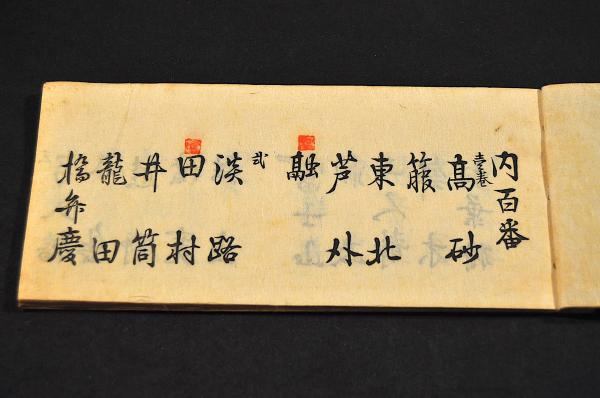 内百番
壱巻
高砂
箙
東北
芦刈
融
弐
淡路
田村
井筒
龍田
橋弁慶